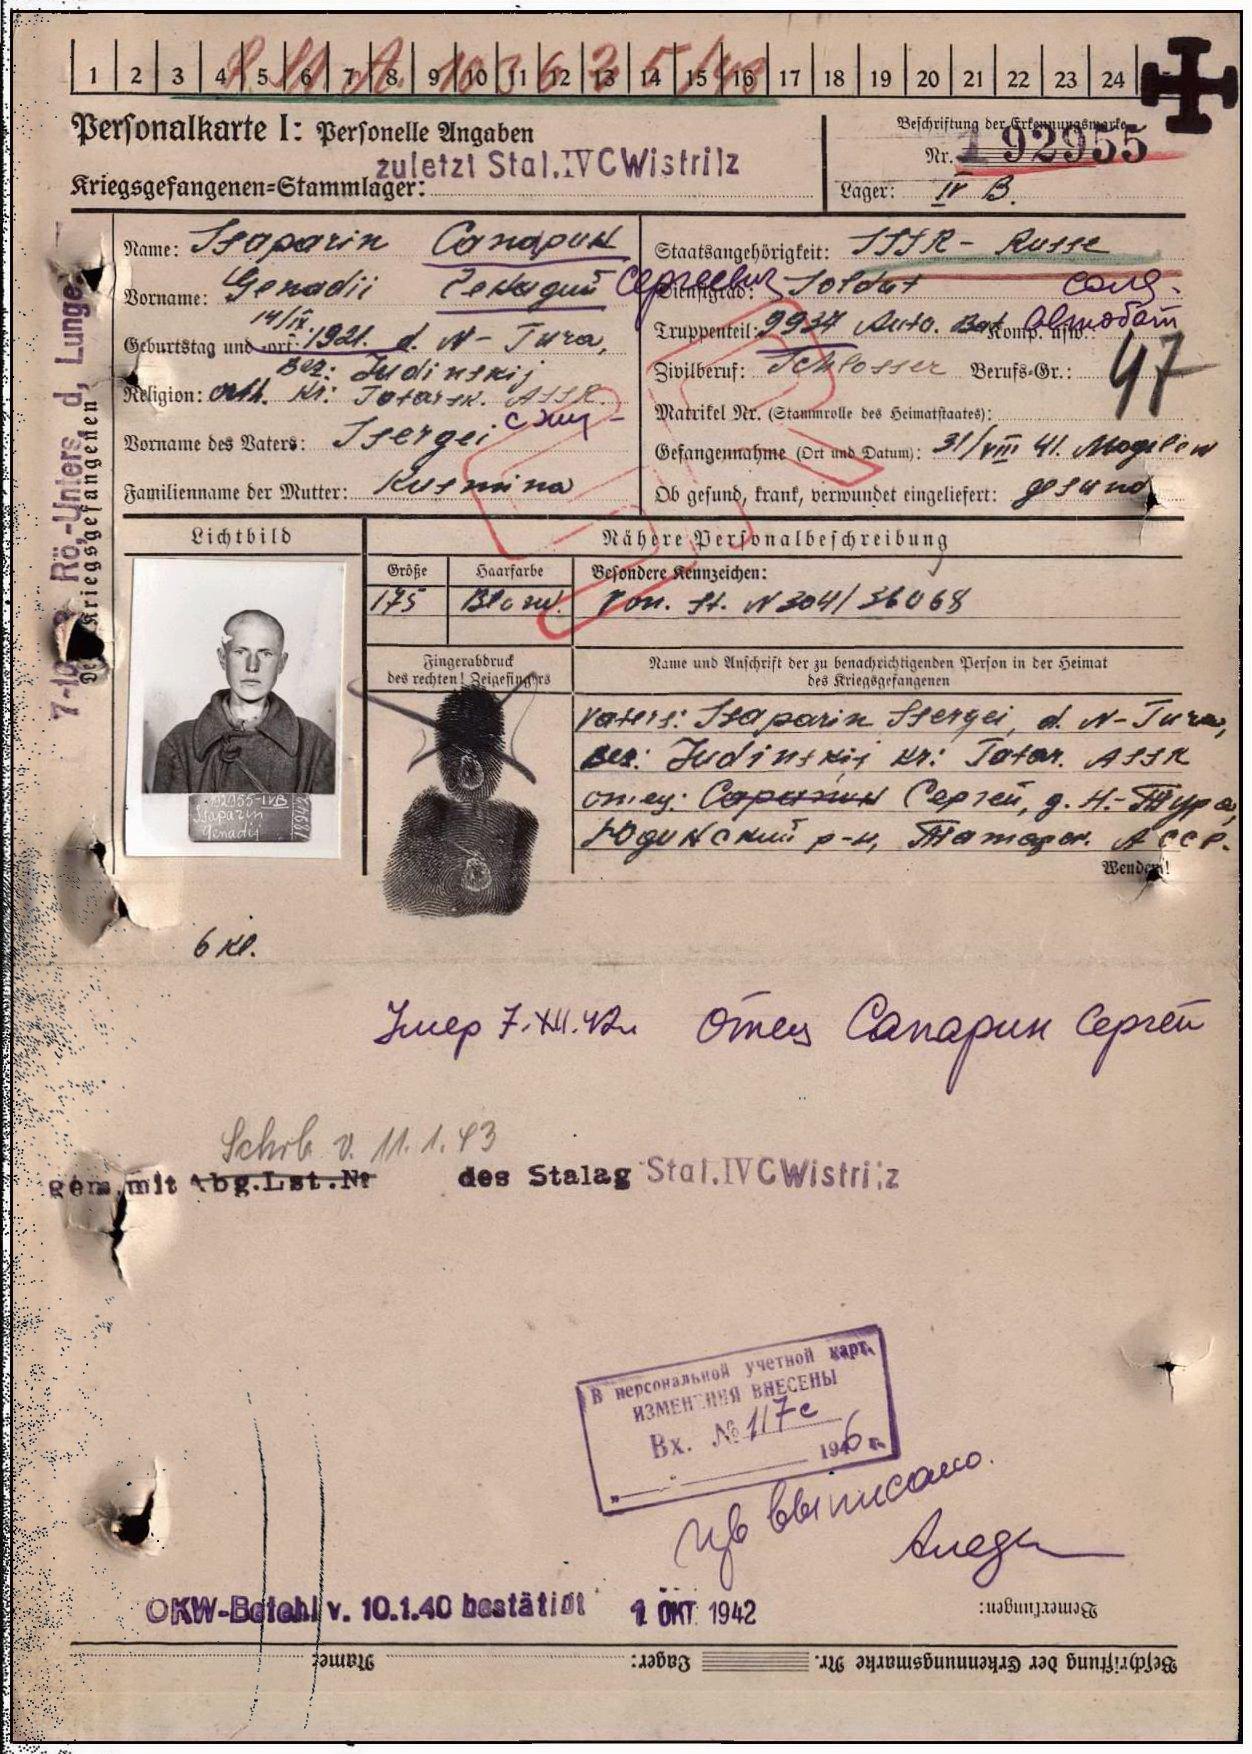 1 2 3 4 5 6 7 8 9 10 11 12 13 14 15 16 17 18 19 20 21 22 23 24
Personalkarte I: Personelle Angaben
Beschriftung der Erkennungsmarke
Nr. 192955
zuletzt Stal. IV C Wistritz
Kriegsgefangenen=Stammlager:
Lager: IV B.
Name: Ssaparin Сапарин
Staatsangehörigkeit: SSSR - Russe
Vorname: Genadii Генадий Сергеевич
Dienstgrad: Soldat солд.
Geburtstag und -ort: 14/IX. 1921. d. N-Tura,
Truppenteil: 9937 Auto. Bat Komp. usw.: Автобат
Bez: Judinskij
Zivilberuf: Schlosser Berufs-Gr.: 47
Religion: Orth. Kr: Tatarsk. ASSR
Matrikel Nr. (Stammrolle des Heimatstaates):
Vorname des Vaters: Ssergei
Gefangennahme (Ort und Datum): 31/VIII 41. Mogilew
Familienname der Mutter: Kusmina
Ob gesund, krank, verwundet eingeliefert: gesund
Lichtbild
Nähere Personalbeschreibung
Größe Haarfarbe Besondere Kennzeichen:
175 Blond. Von. St. N 304/36068
Fingerabdruck
des rechten! Zeigefingers
Name und Anschrift der zu benachrichtigenden Person in der Heimat
des Kriegsgefangenen
Vaters: Ssaparin Ssergei, d. N-Tura,
Bez: Judinskij Kr: Tatar. ASSR
отец: Сапарин Сергей, д. Н.-Тура,
Юдинский р-н, Татарск. АССР.
Wenden!
192955-IVB
Ssaparin
Genadij
6 kl.
Умер 7.XII.42г. Отец Сапарин Сергей
Schrb v. 11.1.43
gem. mit Abg.Lst.Nr des Stalag Stal. IV C Wistritz
В персональной учетной карт.
ИЗМЕНЕНИЯ ВНЕСЕНЫ
Вх. № 117с
1946 г.
выписано.
OKW-Befehl v. 10.1.40 bestätigt 1. OKT. 1942
Bemerkungen:
Beschriftung der Erkennungsmarke Nr. Lager: Name: